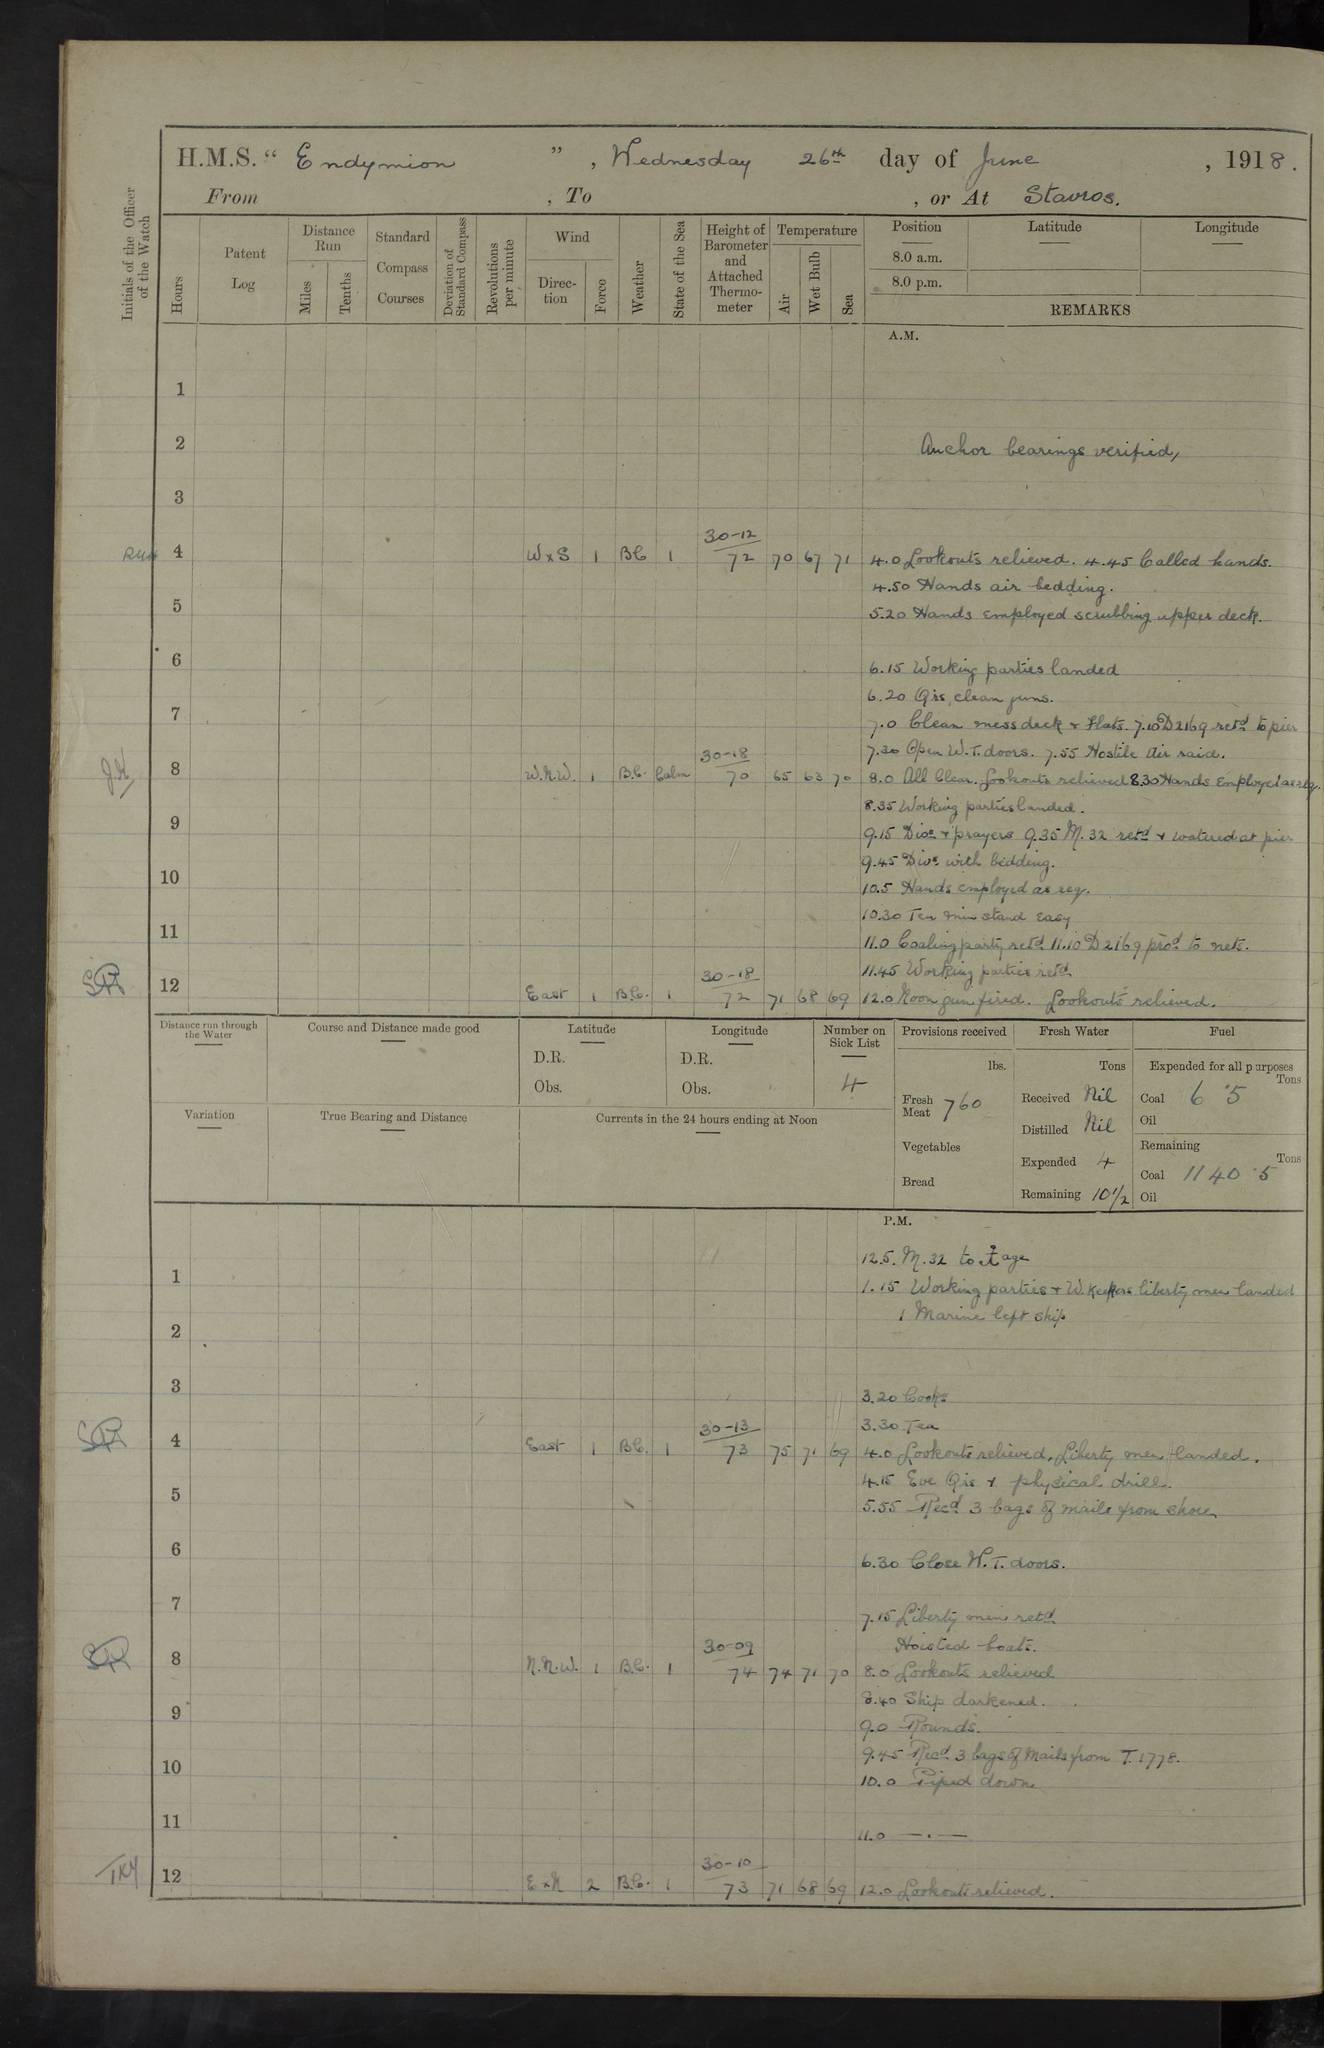 H.M.S. “ Endymion ” , Wednesday 26th day of June , 1918.
From , To , or At Stavros.
Initials of the Officer of the Watch
Hours
Patent Log
Distance Run
Miles
Tenths
Standard Compass Courses
Deviation of Standard Compass
Revolutions per minute
Wind
Direction
Force
Weather
State of the Sea
Height of Barometer and Attached Thermometer
Temperature
Air
Wet Bulb
Sea
Position
8.0 a.m.
8.0 p.m.
Latitude
Longitude
REMARKS
A.M.
1
2 Anchor bearings verified,
3
30-12
4 W x S 1 BC 1 72 70 67 71 4.0 Lookouts relieved. 4.45 Called hands.
4.50 Hands air bedding.
5
5.20 Hands employed scrubbing upper deck.
6
6.15 Working parties landed
6.20 Qrs clean guns.
7
7.0 Clean mess deck & flats. 7.10 D2169 retd to pier
30-18 7.30 Open W.T. doors. 7.55 Hostile Air raid.
J.H. 8 W.N.W. 1 B.C. Calm 70 65 63 70 8.0 All Clear. Lookouts relieved 8.30 Hands employed as req.
8.35 Working parties landed.
9
9.15 Divs & prayers 9.35 M.32 retd & watered at pier
9.45 Divs with bedding.
10
10.5 Hands employed as req.
10.30 Ten min stand easy
11
11.0 Coaling party retd 11.10 D2169 procd to nets.
30-18 11.45 Working parties retd
12 East 1 B.C. 1 72 71 68 69 12.0 Noon gun fired. Lookouts relieved.
Distance run through the Water
Course and Distance made good
Latitude
D.R.
Obs.
Longitude
D.R.
Obs.
Number on Sick List
4
Provisions received
lbs.
Fresh Meat 760
Vegetables
Bread
Fresh Water
Tons
Received Nil
Distilled Nil
Expended 4
Remaining 10½
Fuel
Expended for all purposes
Tons
Coal 6·5
Oil
Remaining
Tons
Coal 1140·5
Oil
Variation
True Bearing and Distance
Currents in the 24 hours ending at Noon
P.M.
12.5. M.32 to
1
1.15 Working parties & W. Keepers liberty men landed
1 Marine left ship
2
3
3.20 Cooks
30-13 3.30 Tea
4 East 1 B.C. 1 73 75 71 69 4.0 Lookouts relieved, Liberty men landed.
4.15 Eve Qrs & physical drill.
5
5.55 Recd 3 bags of mails from shore
6
6.30 Close W.T. doors.
7
7.15 Liberty men retd
30-09 Hoisted boats.
8 N.N.W. 1 B.C. 1 74 74 71 70 8.0 Lookouts relieved
8.40 Ship darkened.
9
9.0 Rounds.
9.45 Recd 3 bags of Mails from T.1778.
10
10.0 Piped down
11
11.0 — . —
30-10
12 E x N 2 B.C. 1 73 71 68 69 12.0 Lookouts relieved.